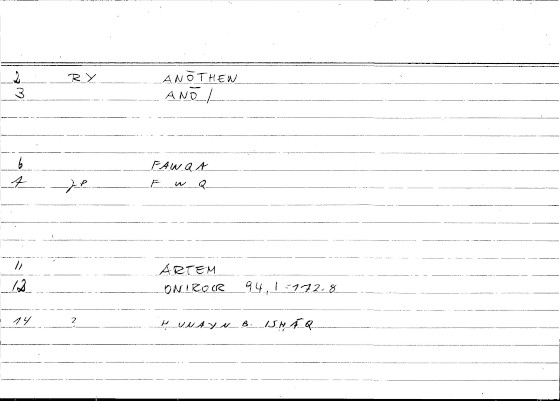 2 RY ANŌTHEN
3 ANŌ /
6 FAWQA
7 F W Q
11 ARTEM
12 ONIROCR 94,1 - 172.8
14 ? ḤUNAYN B. ISḤĀQ